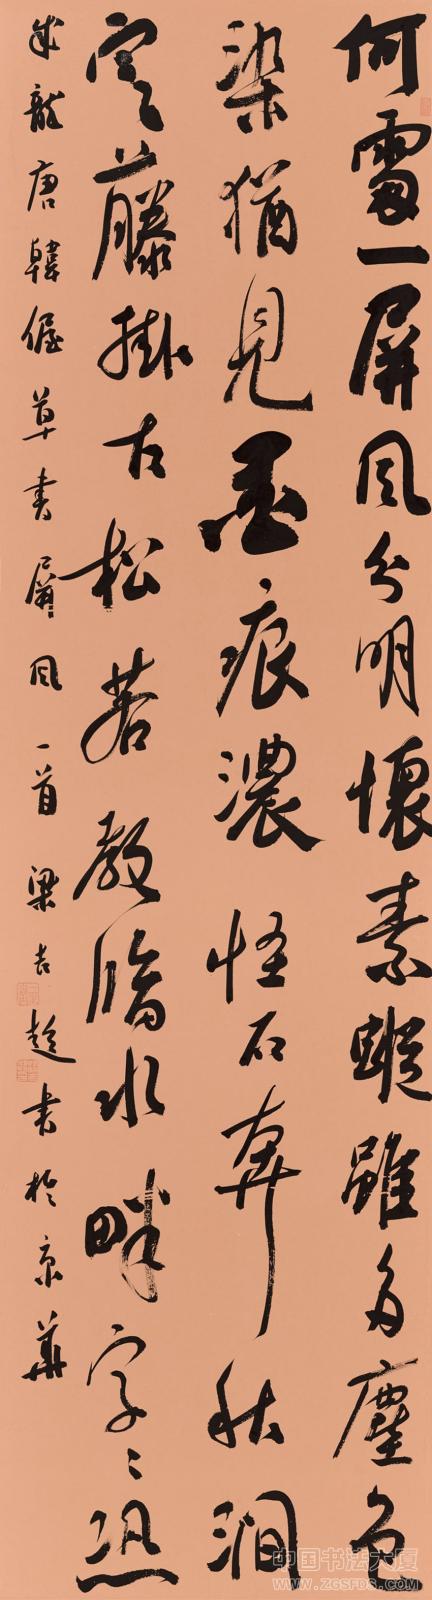 何處一屏風分明懷素蹤雖多塵色
染猶見墨痕濃怪石奔秋澗
寒藤掛古松若教臨水畔字〻恐
成龍唐韓偓草書屏風一首梁吉書於京華
中国书法大厦
WWW.ZGSFDS.COM